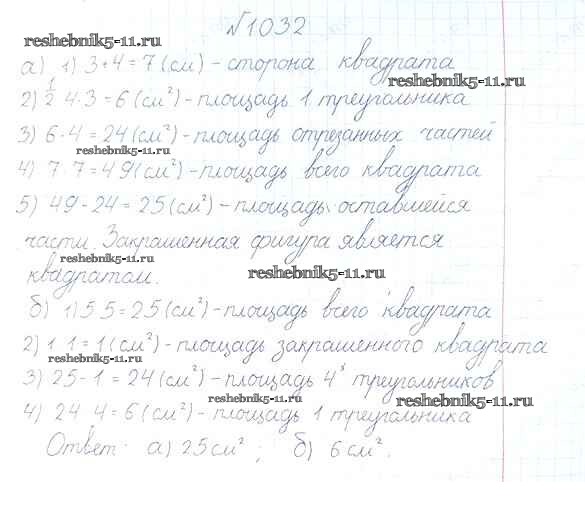 №1032
reshebnik5-11.ru
а) 1) 3+4=7(см) - сторона квадрата
reshebnik5-11.ru
2) 1/2 4·3=6(см²) - площадь 1 треугольника
3) 6·4=24(см²) - площадь отрезанных частей
reshebnik5-11.ru
4) 7·7=49(см²) - площадь всего квадрата
5) 49-24=25(см²) - площадь оставшейся
части. Закрашенная фигура является
reshebnik5-11.ru
квадратом.
reshebnik5-11.ru
б) 1) 5·5=25(см²) - площадь всего квадрата
2) 1·1=1(см²) - площадь закрашенного квадрата
reshebnik5-11.ru
3) 25-1=24(см²) - площадь 4ˣ треугольников
reshebnik5-11.ru
reshebnik5-11.ru
4) 24:4=6(см²) - площадь 1 треугольника
Ответ: а) 25см²; б) 6см².